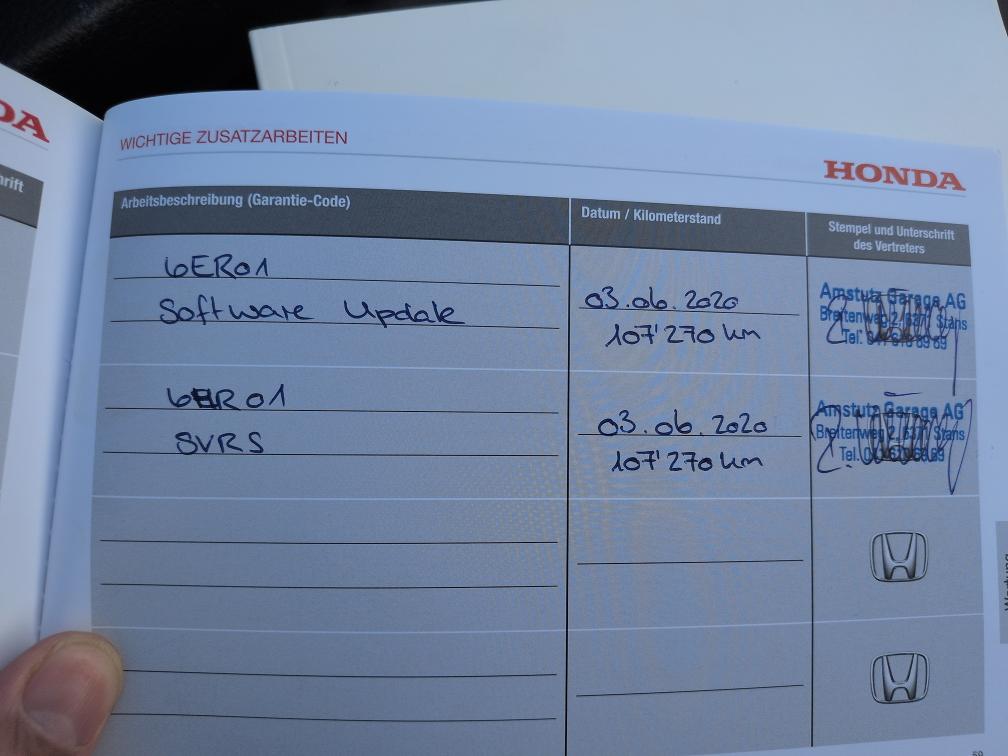 DA
hrift
WICHTIGE ZUSATZARBEITEN
HONDA
Arbeitsbeschreibung (Garantie-Code)
Datum / Kilometerstand
Stempel und Unterschrift
des Vertreters
6ER01
Software Update
03.06.2020
107'270 km
Amstutz Garage AG
Breitenweg 2, 6371 Stans
Tel.
6ER01
SVRS
03.06.2020
107'270 km
Amstutz Garage AG
Breitenweg 2, 6371 Stans
Tel.
Wartung
59